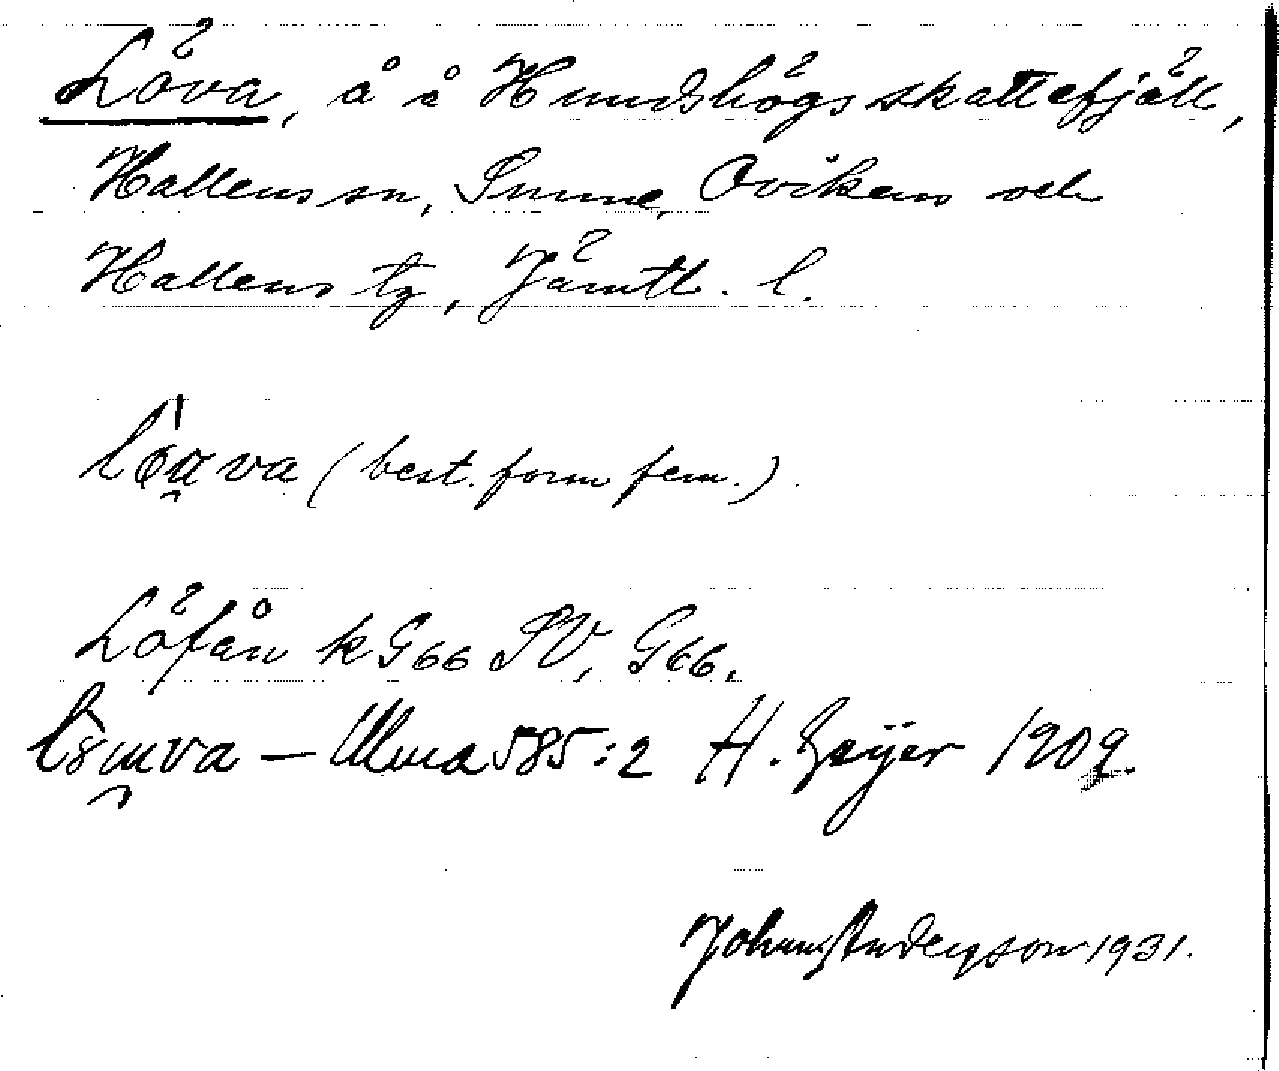 Löva, å i Hundshögs skattefjäll,
Hallens sn, Sunne, Ovikens och
Hallens tg, Jämtl. l.
va (best. form fem.)
Löfån k G66 SV, G66.
— Ulma 585:2 H. Geijer 1909
Johans Anderson 1931.